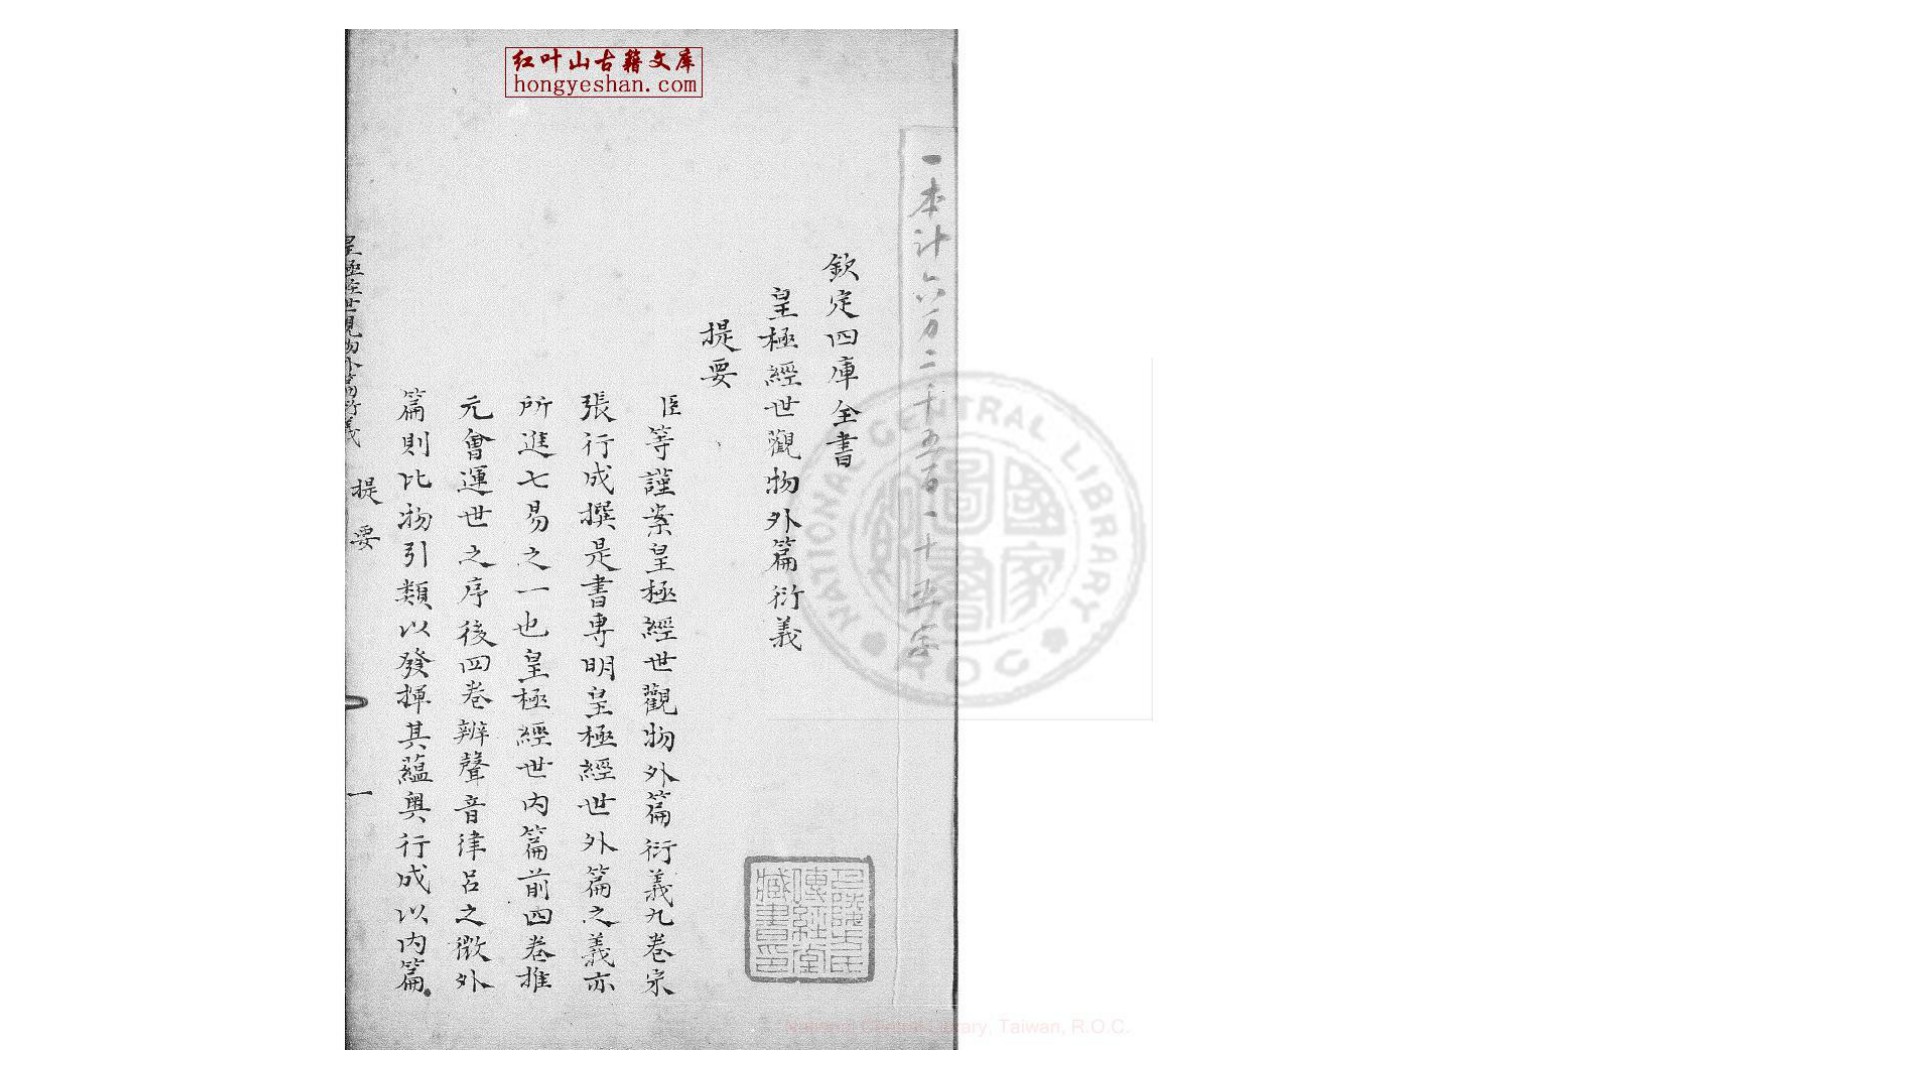 红叶山古籍文库
hongyeshan.com
一本計六万二千五百一十五字
欽定四庫全書
皇極經世觀物外篇衍義
提要
臣等謹案皇極經世觀物外篇衍義九卷宋
張行成撰是書專明皇極經世外篇之義亦
所進七易之一也皇極經世內篇前四卷推
元會運世之序後四卷辨聲音律呂之微外
篇則比物引類以發揮其蘊奥行成以内篇
皇極經世觀物外篇衍義
提要
一
NATIONAL CENTRAL LIBRARY
R.O.C
國家圖書
傳經堂
藏書印
National Central Library, Taiwan, R.O.C.